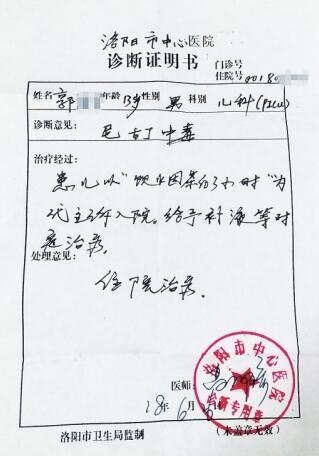 洛阳市中心医院
诊断证明书
门诊号
住院号 00180
姓名 郭 年龄 13岁 性别 男 科别 儿科(PICU)
诊断意见：
尼古丁中毒
治疗经过：
患儿以"饮
小时"为
代主诉入院。给予补液等对
症治疗。
处理意见：
住院治疗。
医师：
洛阳市中心医院
诊断专用章
18年6月
洛阳市卫生局监制
（未盖章无效）